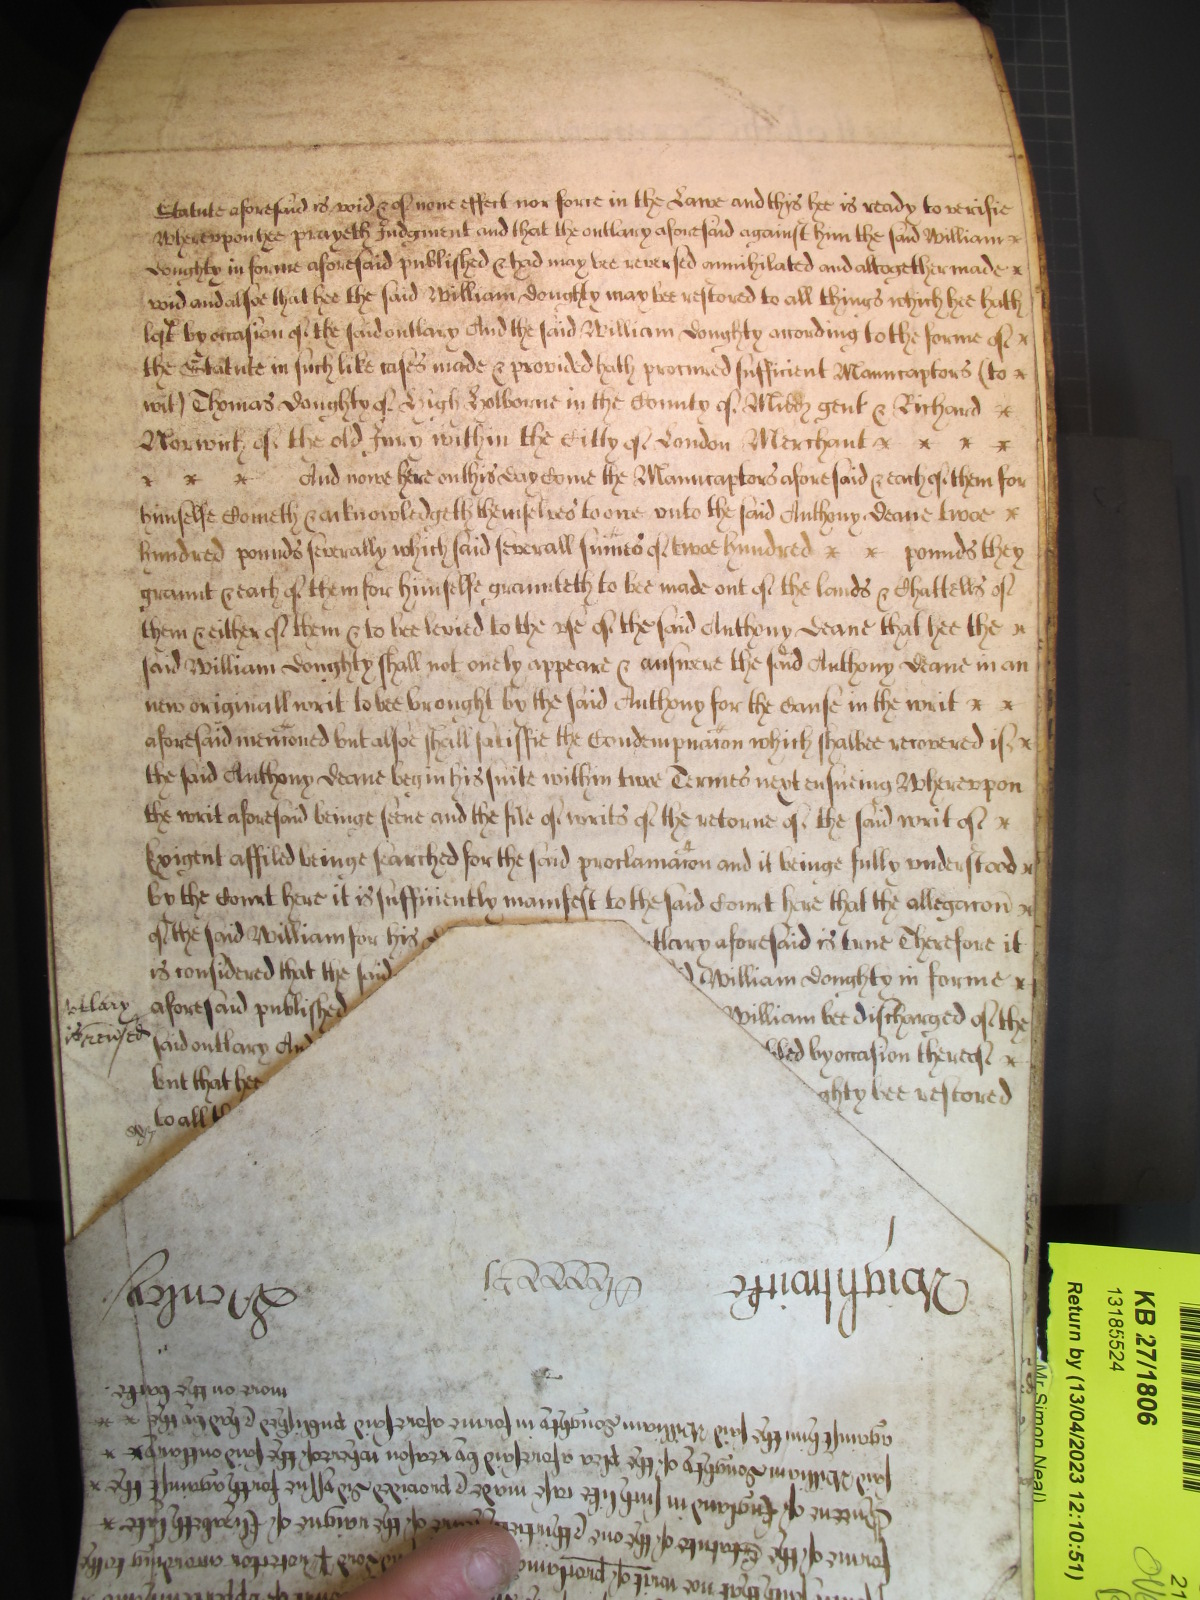 Statute aforesaid is void & of none effect nor force in the Lawe and this hee is ready to verifie
Wherevpon hee prayeth Judgment and that the outlary aforesaid against him the said William x
Doughty in forme aforesaid published & had may bee reversed annihilated and altogether made x
void and alsoe that hee the said William Doughty may bee restored to all things which hee hath
lost by occasion of the said outlary And the said William Doughty according to the forme of x
the Statute in such like cases made & provided hath procured sufficient Manucaptors (to x
wit) Thomas Doughty of High Holborne in the County of Midd gent & Richard x
Norwich of the old Jury within the Citty of London Merchant x x x x
x x x And nowe here on this day Come the Manucaptors aforesaid & each of them for
himselfe Cometh & acknowledgeth themselves to owe vnto the said Anthony Deane twoe x
hundred pounds severally which said severall summes of twoe hundred x x pounds they
graunt & each of them for himselfe graunteth to bee made out of the lands & Chattells of
them & either of them & to bee levied to the vse of the said Anthony Deane that hee the x
said William Doughty shall not onely appeare & answere the said Anthony Deane in an
new originall writ to bee brought by the said Anthony for the Cause in the writ x x
aforesaid mencioned but alsoe shall satisffie the Condempnacion which shalbee recovered if x
the said Anthony Deane begin his suite within twoe Termes next ensueing Wherevpon
the writ aforesaid beinge seene and the file of writs of the retorne of the said writ of x
Exigent affiled beinge searched for the said proclamacion and it beinge fully vnderstood x
by the Court here it is sufficiently manifest to the said Court here that the allegacon x
of the said William for his tlary aforesaid is true Therefore it
is considered that the said William Doughty in forme x
vtlary
is reversed
aforesaid published William bee discharged of the
said outlary And by occasion thereof x
but that hee ghty bee restored
to all
Wightwicke
Henley
more on the backe
against him the said William Doughty in forme aforesaid published & had by the x x
said William Doughty of the plea aforesaid by reason whereof the said outlary x
Queene of England in such like case made & provided did yssue forth against the x
forme of the Statute of the one & thirtieth yeare of the raigne of Elizabeth late x
KB 27/1806
13185524
Return by (13/04/2023 12:10:51)
Mr Simon Neal